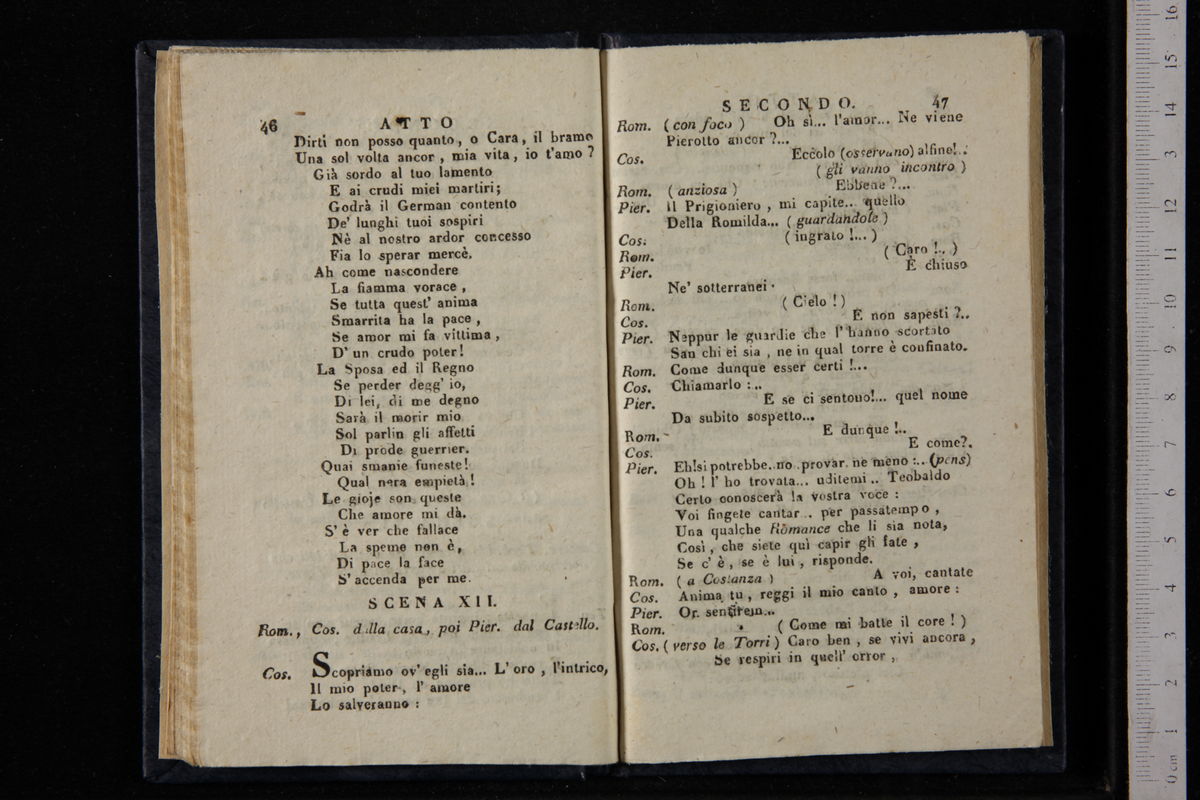 46
ATTO
Dirti non posso quanto, o Cara, il bramo
Una sol volta ancor, mia vita, io t'amo?
Già sordo al tuo lamento
E ai crudi miei martiri;
Godrà il German contento
De' lunghi tuoi sospiri
Nè al nostro ardor concesso
Fia lo sperar mercè.
Ah come nascondere
La fiamma vorace,
Se tutta quest' anima
Smarrita ha la pace,
Se amor mi fa vittima,
D' un crudo poter!
La Sposa ed il Regno
Se perder degg' io,
Di lei, di me degno
Sarà il morir mio
Sol parlin gli affetti
Di prode guerrier.
Quai smanie funeste!
Qual nera empietà!
Le gioje son queste
Che amore mi dà.
S' è ver che fallace
La speme non è,
Di pace la face
S' accenda per me.
SCENA XII.
Rom., Cos. dalla casa, poi Pier. dal Castello.
Cos. Scopriamo ov' egli sia... L' oro, l'intrico,
Il mio poter, l' amore
Lo salveranno:
SECONDO. 47
Rom. (con foco) Oh sì... l'amor... Ne viene
Pierotto ancor?...
Cos. Eccolo (osservano) alfine!..
(gli vanno incontro)
Rom. (anziosa) Ebbene?...
Pier. Il Prigioniero, mi capite... quello
Della Romilda... (guardandole)
Cos. (ingrato!...)
Rom. (Caro!..)
Pier. È chiuso
Ne' sotterranei.
Rom. (Cielo!)
Cos. E non sapesti?..
Pier. Neppur le guardie che l' hanno scortato
San chi ei sia, ne in qual torre è confinato.
Rom. Come dunque esser certi!...
Cos. Chiamarlo:..
Pier. E se ci sentono!... quel nome
Da subito sospetto...
Rom. E dunque!..
Cos. E come?.
Pier. Eh! si potrebbe.. no. provar. ne meno:.. (pens)
Oh! l' ho trovata... uditemi.. Teobaldo
Certo conoscerà la vostra voce:
Voi fingete cantar.. per passatempo,
Una qualche Romance che li sia nota,
Così, che siete quì capir gli fate,
Se c' è, se è lui, risponde.
Rom. (a Costanza) A voi, cantate
Cos. Anima tu, reggi il mio canto, amore:
Pier. Or. sentirem...
Rom. (Come mi batte il core!)
Cos. (verso le Torri) Caro ben, se vivi ancora,
Se respiri in quell' orror,
0 cm 1 2 3 4 5 6 7 8 9 10 11 12 13 14 15 16